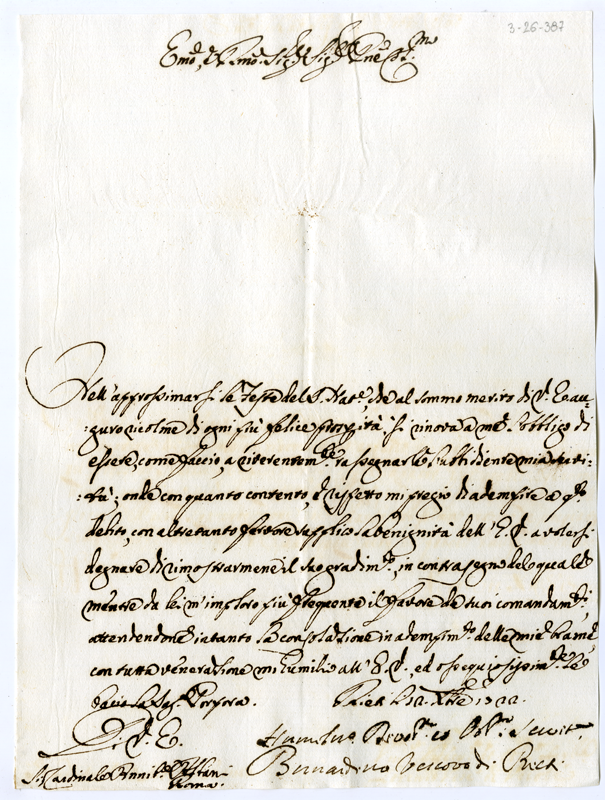 3-26-387
Emo, e Rmo Sigr Sigr Pne Colmo
Nell'approssimarsi le Feste del S. Nate, che al sommo merito di V. E. au=
=guro ricolme di ogni più felice prosperità, si rinova a me l'obbligo di
essere, come faccio, a riverentemte rassegnarle l'attidente mia
=tù; onde con quanto contento, e rispetto mi pregio di adempire a qto
debito, con altretanto fervore supplico la benignità dell'E. V. a volersi
degnare di dimostrarmene il suo gradimto, in contrasegno del quale
mentre da lei m'imploro più frequente il favore de suoi comandamti,
attendendone intanto la consolazione in adempimto delle mie brame
con tutta venerazione mi umilio all'E. V., ed ossequiosissimamte Le
bacio la Sag. Porpora. Rieti 12 Xbre 1722
Di V. E.
Humilmo Devotmo ed Obbmo Servite
S. Cardinale Annibe Albani Bernardino Vescovo di Rieti
Roma